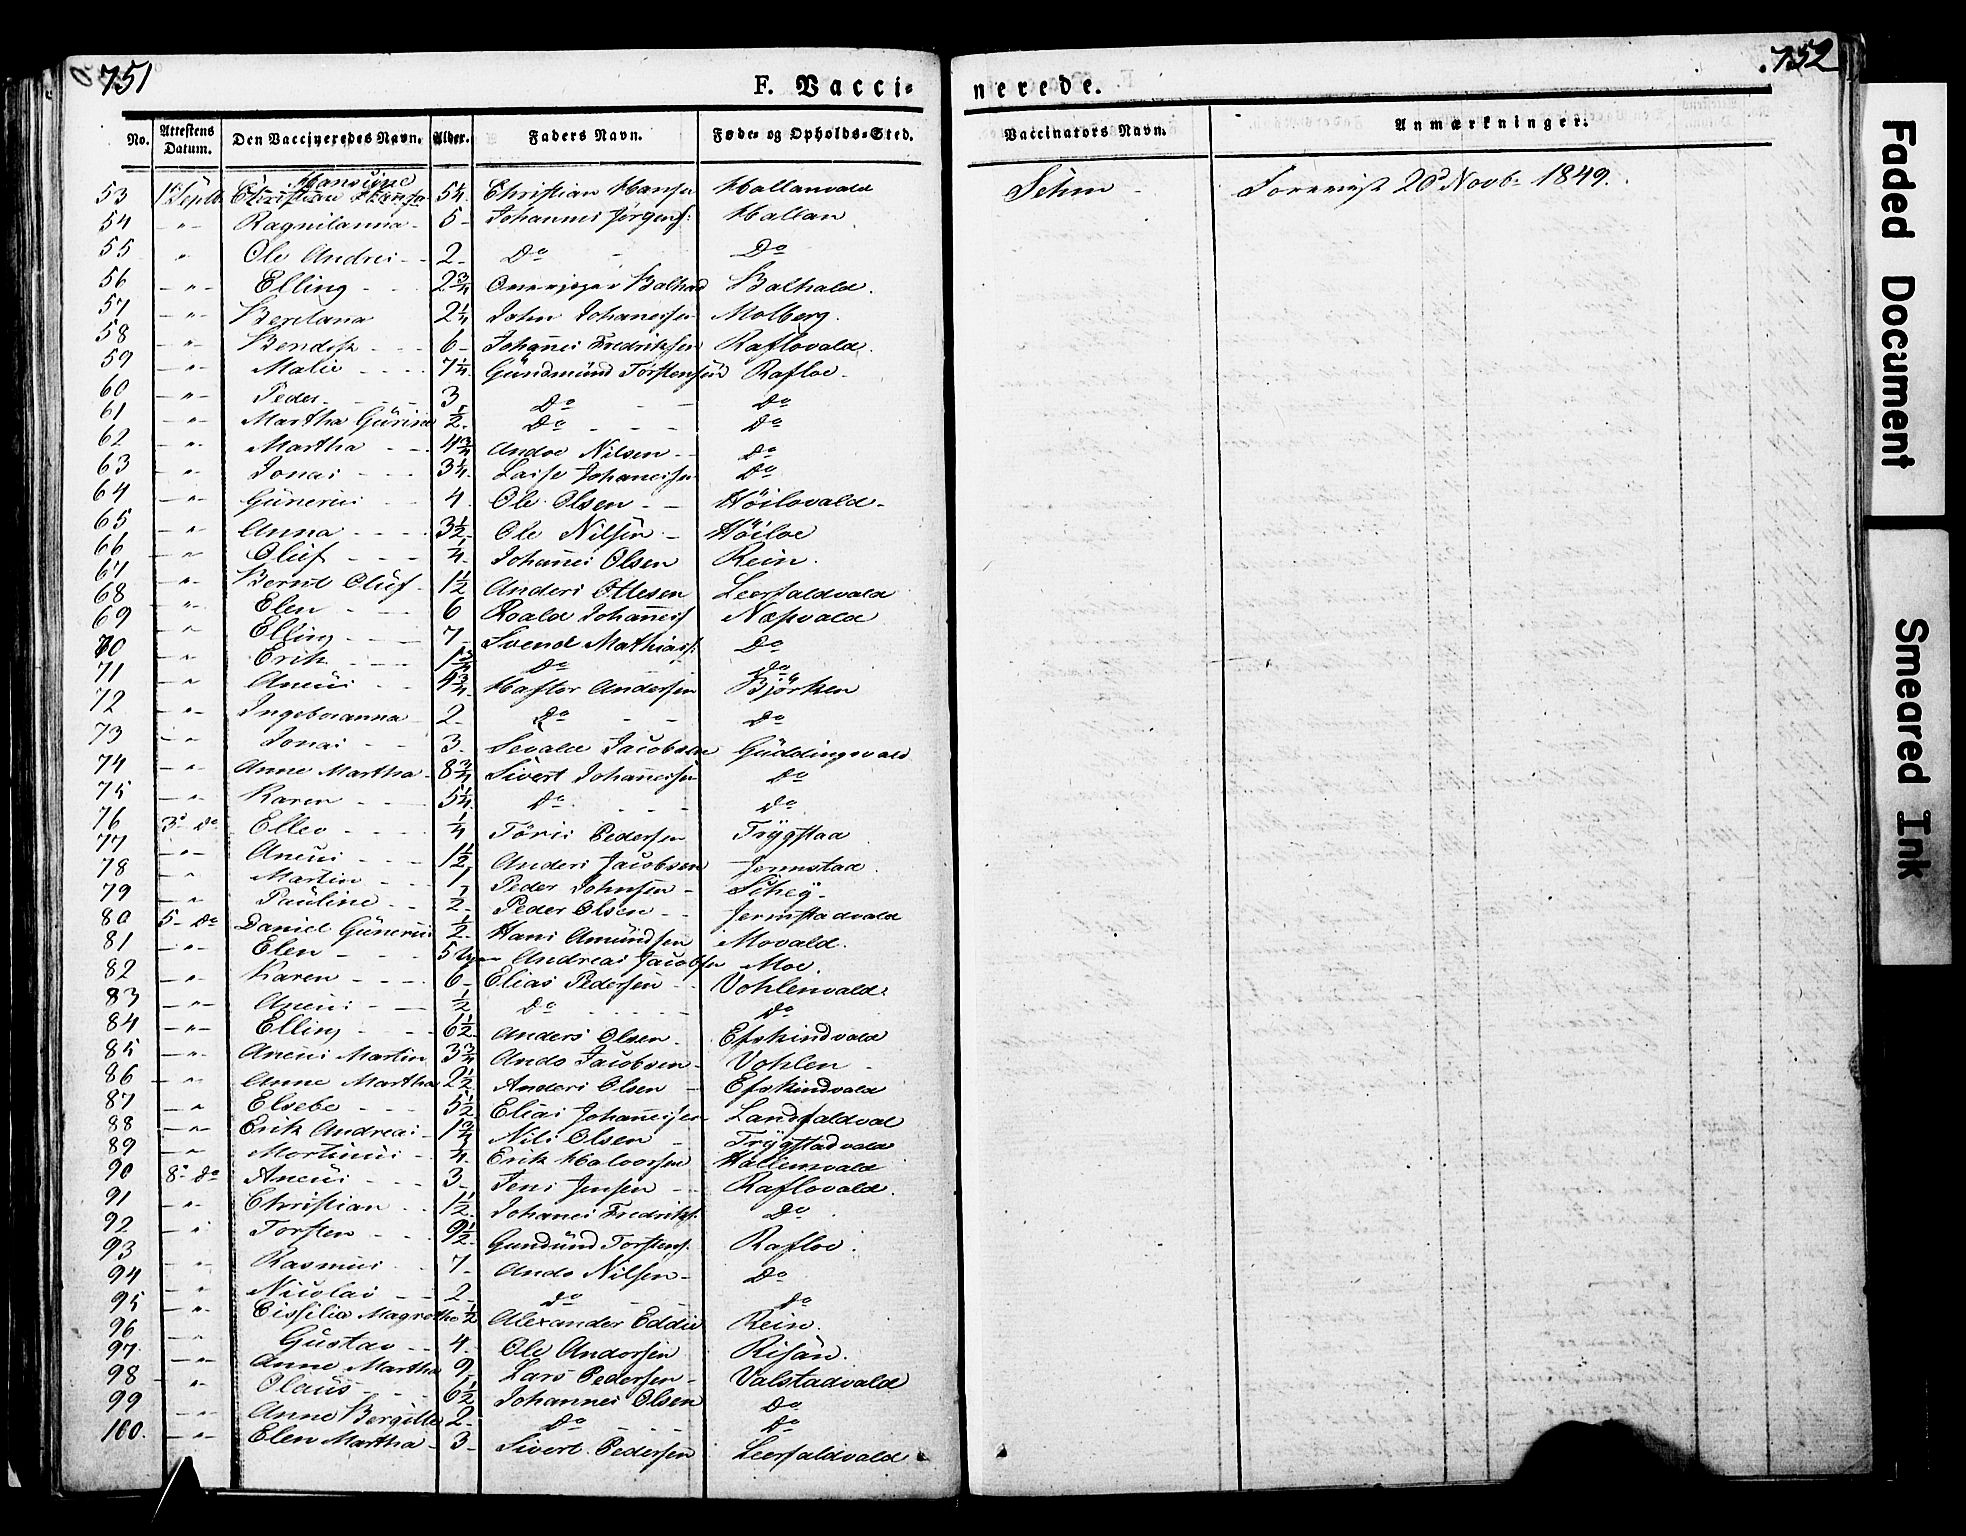 751
F. Vacci-
nerede.
752
No. Attestens Datum. Den Vaccineredes Navn. Alder. Faders Navn. Føde- og Opholds-Sted. Vaccinators Navn. Anmærkninger.
Hansine
53 1 Septb Christian Hansen 5¼ Christian Hansen Hallanvald Sehm - Foreviist 26 Novb 1849.
54 -"- Ragnilanna - 5 - Johannes Jørgens: Hallan
55 " Ole Andrei - - 2 - Do - Do
56 -"- Elling - - 2¾ Balhald.
57 -"- Beritana 2¼ John Johanesen Molberg.
58 -"- 6 - Johanes Fredriksen Raflovald.
59 -"- Malie - - - - 7¼ Gundmund Torstensen Rafloe -
60 -"- Peder - - - 3 Do - - Do
61 -"- Martha Gurine ½ Do - - - Do
62 -"- Martha - - 4¾ Ando Nilsen - - Do
63 -"- Jonas - - - 3¼ Johanesen Do
64 -"- Gunerius - - 4 Ole Olsen - - Höilovald -
65 -"- Anna - - - - 3½ Ole Nilsen - Höiloe
66 -"- Oluf - - - ¼ Johanes Olsen Rein.
67 -"- Bernt Oluf - 1½ Anders Ottesen Leersaldvald
68 -"- Elen - - - 6 Roald Johannes Næsvald
69 -"- Elling - - - 7 - Svend Mathias: Do
70 -"- Erik - - - 1¾ Do Do
71 -"- Aneus - - 4¾ Haftor Andersen Björken
72 -"- Ingeboranna - 2 - Do - - Do
73 -"- Jonas - - 3 - Sevald Jacobsen Guddingsvald
74 -"- Anne Martha - 8¾ Sivert Johannesen Do
75 -"- Karen - - - 5¼ Do - - - Do
76 3 - Do Ellev - - - - ¼ Töris Pedersen Trygstad
77 -"- Aneus - - - 1½ Anders Jacobsen Jermstad.
78 -"- Martin - - 1 Peder Johnsen -
79 -"- Pauline - - ½ Peder Olsen - - Jermstadvald
80 5 - Do Daniel Gunerius ½ Hans Amundsen Movald.
81 -"- Elen - - - 5 Andreas Jacobsen Moe.
82 -"- Karen - - - - 6 - Elias Pedersen - - Vohlenvald.
83 -"- Aneus - - ½ Do - - - - - Do
84 -"- Elling - - - 6½ Anders Olsen - Efskindvald
85 -"- Aneus Martin 3¾ Ando Jacobsen - Vohlen -
86 -"- Anne Martha 2½ Anders Olsen - Efskindvald
87 -"- Elsebe - - - 5½ Elias Johannesen Landfaldval
88 -"- Erik Andreas - 1¾ Nils Olsen - Trygstadvald
89 -"- Mortinus - - ¼ Erik Halvorsen Hallemvald
90 8 - do Aneus - - - 3 - Jens Jensen - - Raflovald.
91 -"- Christian - - 1½ Johanes Fredriks: Do
92 -"- Torsten - - - 9½ Gundund Torstens: Rafloe.
93 -"- Rasmus - - 7 - Ando Nilsen - Do
94 -"- Nicolai - - 2 - Do - - - Do
95 -"- Cissilie Magretha ½ Alexander Eddie Rein.
96 -"- Gustav - - 4. Ole Andersen Risan.
97 -"- Anne Martha 9 Lars Pedersen - Valstadvald
98 -"- Olaus - - 6½ Johannes Olsen Do
99 -"- Anne Bergitte 2 - Do - - Do
100. -"- Elen Martha - 3 - Sivert Pedersen Leersaldvald
Faded Document
Smeared Ink